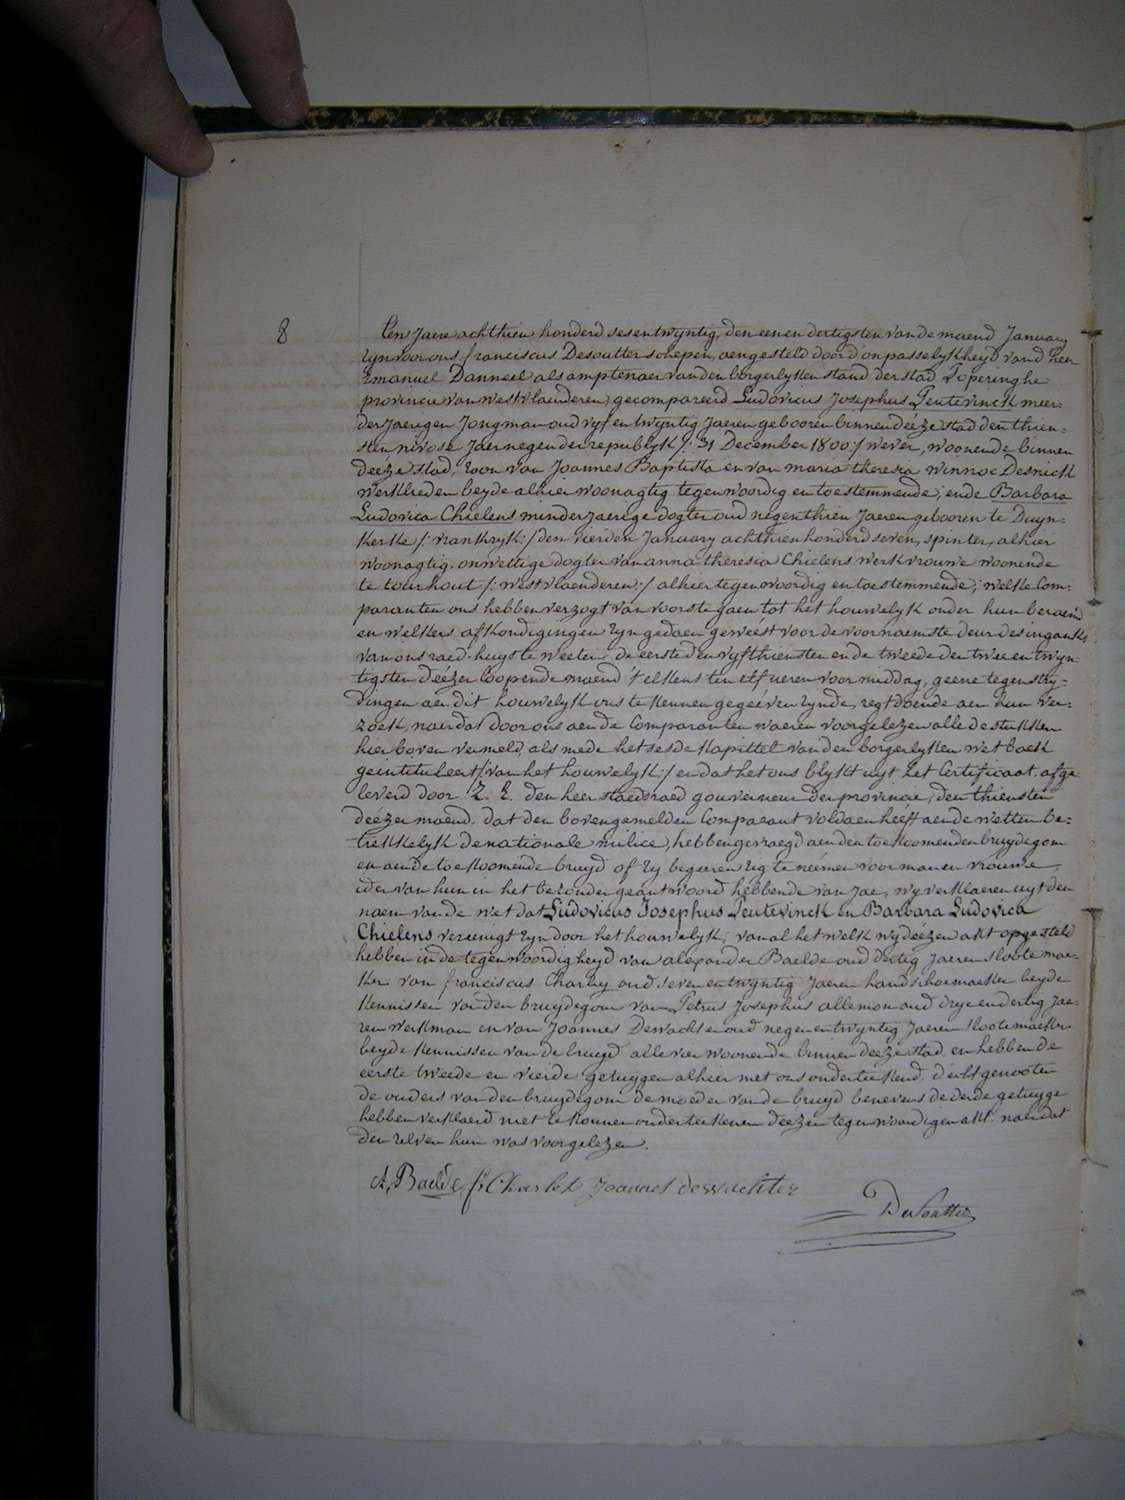 8
Ten Jaere achthien honderd sesentwyntig, den eenen dertigsten van de maend January
zyn voor ons franciscus Desoutter schepen, aengesteld door d'onpasselykheyd van d'heer
Emanuel Danneel als amptenaer van den borgerlyken stand der stad Poperinghe
provincie van westvlaenderen, gecompareerd Ludovicus Josephus Teutevinck meer-
derjaerigen Jongman oud vyf en twyntig Jaeren gebooren binnen deeze stad den thien-
sten nivose Jaer negen der republyk /: 31 December 1800 :/ wever, woonende binnen
deeze stad, zoon van Joannes Baptista en van maria theresia winnoc Desnick
werklieden beyde alhier woonagtig tegenwoordig en toestemmende; ende Barbara
Ludovica Chielens minderjaerige dogter oud negenthien Jaeren gebooren te Duyn-
kerke /: vrankryk :/ den vierden January achthien honderd seven, spinter, alhier
woonagtig, onwettige dogter van anna theresia Chielens werkvrouwe woonende
te tourhout /: westvlaenderen :/ alhier tegenwoordig en toestemmende; welke Com-
paranten ons hebben verzogt van voorste gaen tot het houwelyk onder hun beraemd
en welkers afkondigingen zyn gedaen geweést voor de voornaemste deur des ingangs
van ons raed-huys te weeten: de eerste den vyfthiensten ende tweede den twee en twyn-
tigsten deézer loopende maend t'elkens ten elf ueren voormiddag, geene tegenstry-
dingen aen dit houwelyk ons te kennen gegeéven zynde, regt doende aen hun ver-
zoek, naerdat door ons aen de Comparanten waeren voorgelezen alle de stukken
hier boven vermeld, als mede het sesde kapittel van den borgerlyken wetboek
geintituleert /: van het houwelyk :/ en dat het ons blykt uyt het Certificaat afge-
leverd door Z. E. den heer staedsraed gouverneur der provincie, den thiensten
deézer maend, dat den bovengemelden Comparant voldaen heéft aen de wetten be-
trekkelyk de nationale milice, hebben gevraegd aen den toekoomenden bruydegom
en aen de toekoomende bruyd of zy begeeren zig te neémen voor man en vrouwe
ider van hun in het bezonder geantwoord hebbende van jae, wy verklaeren uyt den
naem van de wet dat Ludovicus Josephus Teutevinck en Barbara Ludovica
Chielens vereenigt zyn door het houwelyk; van al het welk wy deézen akt opgesteld
hebben in de tegenwoordigheyd van alexander Baelde oud dertig Jaeren slootemae-
ker van franciscus Charley oud seven en twyntig Jaeren handschoemaeker beyde
kennissen van den bruydegom van Petrus Josephus allemon oud drye en dertig Jae-
ren werkman en van Joannes Dewachter oud negen en twyntig Jaeren slootemaeker
beyde kennissen van de bruyd alle vier woonende binnen deéze stad en hebben de
eerste tweede en vierde getuygen alhier met ons onderteekend, d'echtgenooten
de ouders van den bruydegom de moeder van de bruyd benevens de derde getuyge
hebben verklaerd niet te konnen onderteekenen deézen tegenwoordigen akt naerdat
den zelven hun was voorgelezen.
A, Baelde fr Charlet Joannes dewachter
DeSoutter